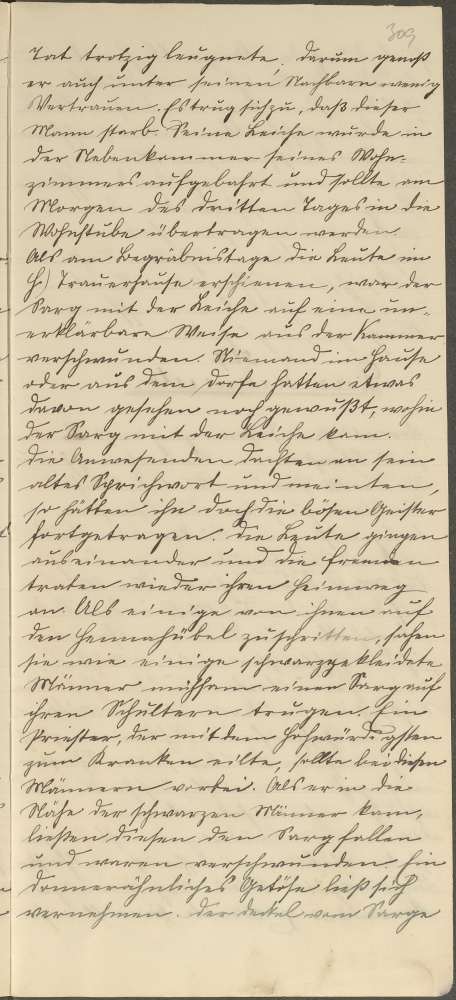 309
Tat trotzig leugnete, darum genoß
er auch unter seinen Nachbarn wenig
Vertrauen. Es trug sich zu, daß dieser
Mann starb. Seine Leiche wurde in
der Nebenkammer seines Wohn-
zimmers aufgebahrt und sollte am
Morgen des dritten Tages in die
Wohnstube übertragen werden.
Als am Begräbnistage die Leute im
Trauerhause erschienen, war der
Sarg mit der Leiche auf eine un-
erklärbare Weise aus der Kammer
verschwunden. Niemand im Hause
oder aus dem Dorfe hatten etwas
davon gesehen noch gewußt, wohin
der Sarg mit der Leiche kam.
Die Anwesenden dachten an sein
altes Sprichwort und meinten,
so hätten ihn doch die bösen Geister
fortgetragen. Die Leute gingen
auseinander und die Fremden
traten wieder ihren Heimweg
an. Als einige von ihnen auf
den Hennahübel zuschritten, sahen
sie wie einige schwarzgekleidete
Männer mühsam einen Sarg auf
ihren Schultern trugen. Ein
Priester, der mit dem Hochwürdigsten
zum Kranken eilte, sollte bei diesen
Männern vorbei. Als er in die
Nähe der schwarzen Männer kam,
ließen diesen den Sarg fallen
und waren verschwunden. Ein
donnerähnliches Getöse ließ sich
vernehmen. Der Deckel vom Sarge